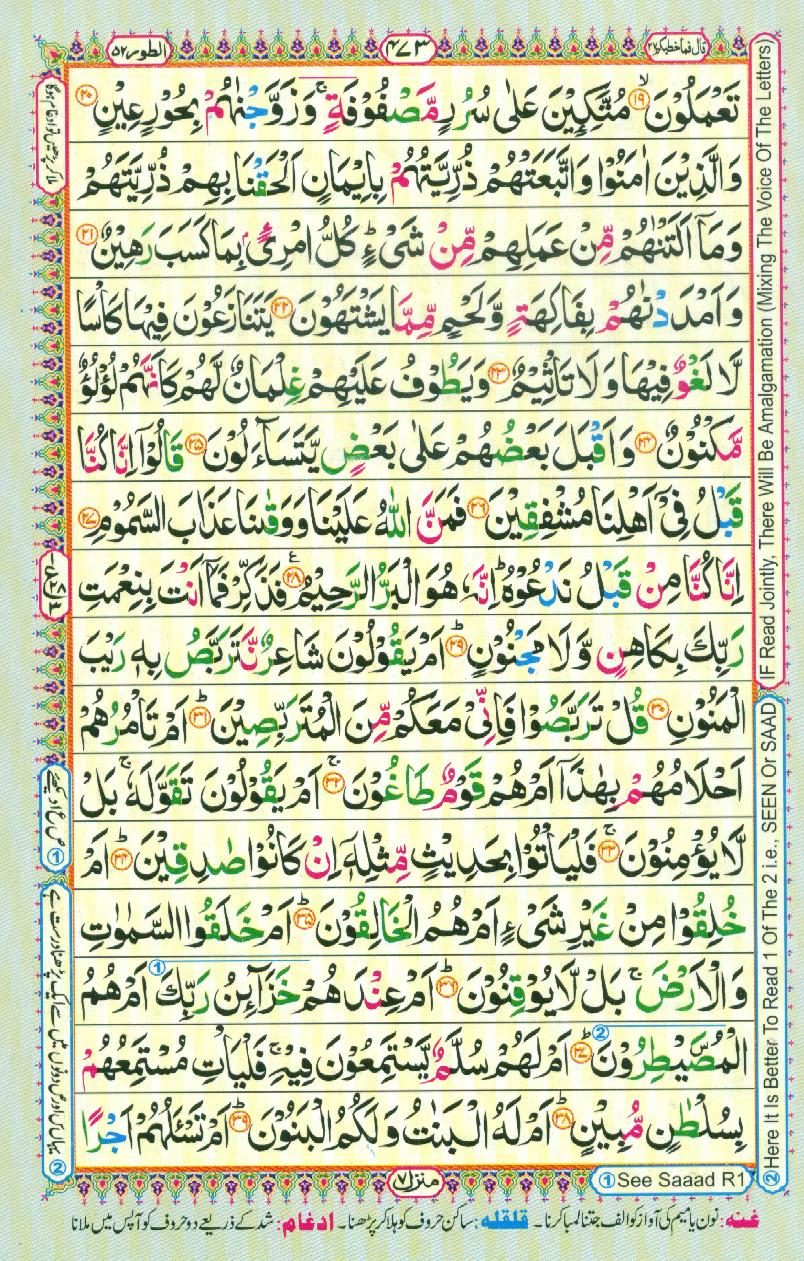 قال فما خطبكم ٢٧
٤٧٣
الطور ٥٢
تَعْمَلُوْنَ ۙ﴿۱۹﴾ مُتَّكِـِٕیْنَ عَلٰی سُرُرٍ مَّصْفُوْفَةٍ ۚ وَ زَوَّجْنٰهُمْ بِحُوْرٍ عِیْنٍ ﴿۲۰﴾
وَالَّذِیْنَ اٰمَنُوْا وَاتَّبَعَتْهُمْ ذُرِّیَّتُهُمْ بِاِیْمَانٍ اَلْحَقْنَا بِهِمْ ذُرِّیَّتَهُمْ
وَمَاۤ اَلَتْنٰهُمْ مِّنْ عَمَلِهِمْ مِّنْ شَیْءٍ ؕ كُلُّ امْرِئٍۭ بِمَا كَسَبَ رَهِیْنٌ ﴿۲۱﴾
وَ اَمْدَدْنٰهُمْ بِفَاكِهَةٍ وَّلَحْمٍ مِّمَّا یَشْتَهُوْنَ ﴿۲۲﴾ یَتَنَازَعُوْنَ فِیْهَا كَاْسًا
لَّا لَغْوٌ فِیْهَا وَلَا تَاْثِیْمٌ ﴿۲۳﴾ وَیَطُوْفُ عَلَیْهِمْ غِلْمَانٌ لَّهُمْ كَاَنَّهُمْ لُؤْلُؤٌ
مَّكْنُوْنٌ ﴿۲۴﴾ وَاَقْبَلَ بَعْضُهُمْ عَلٰی بَعْضٍ یَّتَسَآءَلُوْنَ ﴿۲۵﴾ قَالُوْۤا اِنَّا كُنَّا
قَبْلُ فِیْۤ اَهْلِنَا مُشْفِقِیْنَ ﴿۲۶﴾ فَمَنَّ اللّٰهُ عَلَیْنَا وَوَقٰىنَا عَذَابَ السَّمُوْمِ ﴿۲۷﴾
اِنَّا كُنَّا مِنْ قَبْلُ نَدْعُوْهُ ؕ اِنَّهٗ هُوَ الْبَرُّ الرَّحِیْمُ ﴿۲۸﴾ ع فَذَكِّرْ فَمَاۤ اَنْتَ بِنِعْمَتِ
رَبِّكَ بِكَاهِنٍ وَّلَا مَجْنُوْنٍ ؕ﴿۲۹﴾ اَمْ یَقُوْلُوْنَ شَاعِرٌ نَّتَرَبَّصُ بِهٖ رَیْبَ
الْمَنُوْنِ ﴿۳۰﴾ قُلْ تَرَبَّصُوْا فَاِنِّیْ مَعَكُمْ مِّنَ الْمُتَرَبِّصِیْنَ ؕ﴿۳۱﴾ اَمْ تَاْمُرُهُمْ
اَحْلَامُهُمْ بِهٰذَاۤ اَمْ هُمْ قَوْمٌ طَاغُوْنَ ۚ﴿۳۲﴾ اَمْ یَقُوْلُوْنَ تَقَوَّلَهٗ ۚ بَلْ
لَّا یُؤْمِنُوْنَ ۚ﴿۳۳﴾ فَلْیَاْتُوْا بِحَدِیْثٍ مِّثْلِهٖۤ اِنْ كَانُوْا صٰدِقِیْنَ ؕ﴿۳۴﴾ اَمْ
خُلِقُوْا مِنْ غَیْرِ شَیْءٍ اَمْ هُمُ الْخَالِقُوْنَ ؕ﴿۳۵﴾ اَمْ خَلَقُوا السَّمٰوٰتِ
وَالْاَرْضَ ۚ بَلْ لَّا یُوْقِنُوْنَ ؕ﴿۳۶﴾ اَمْ عِنْدَهُمْ خَزَآىِٕنُ رَبِّكَ ① اَمْ هُمُ
الْمُصَۜیْطِرُوْنَ ② ؕ﴿۳۷﴾ اَمْ لَهُمْ سُلَّمٌ یَّسْتَمِعُوْنَ فِیْهِ ۚ فَلْیَاْتِ مُسْتَمِعُهُمْ
بِسُلْطٰنٍ مُّبِیْنٍ ؕ﴿۳۸﴾ اَمْ لَهُ الْبَنٰتُ وَلَكُمُ الْبَنُوْنَ ؕ﴿۳۹﴾ اَمْ تَسْـَٔلُهُمْ اَجْرًا
IF Read Jointly, There Will Be Amalgamation (Mixing The Voice Of The Letters)
② Here It Is Better To Read 1 Of The 2 i.e., SEEN Or SAAD
منزل ٧
① See Saaad R1
غنه: نون یا میم کی آواز کو الف جتنا لمبا کرنا۔ قلقله: ساکن حروف کو ہلا کر پڑھنا۔ ادغام: شد کے ذریعے دو حروف کو آپس میں ملانا